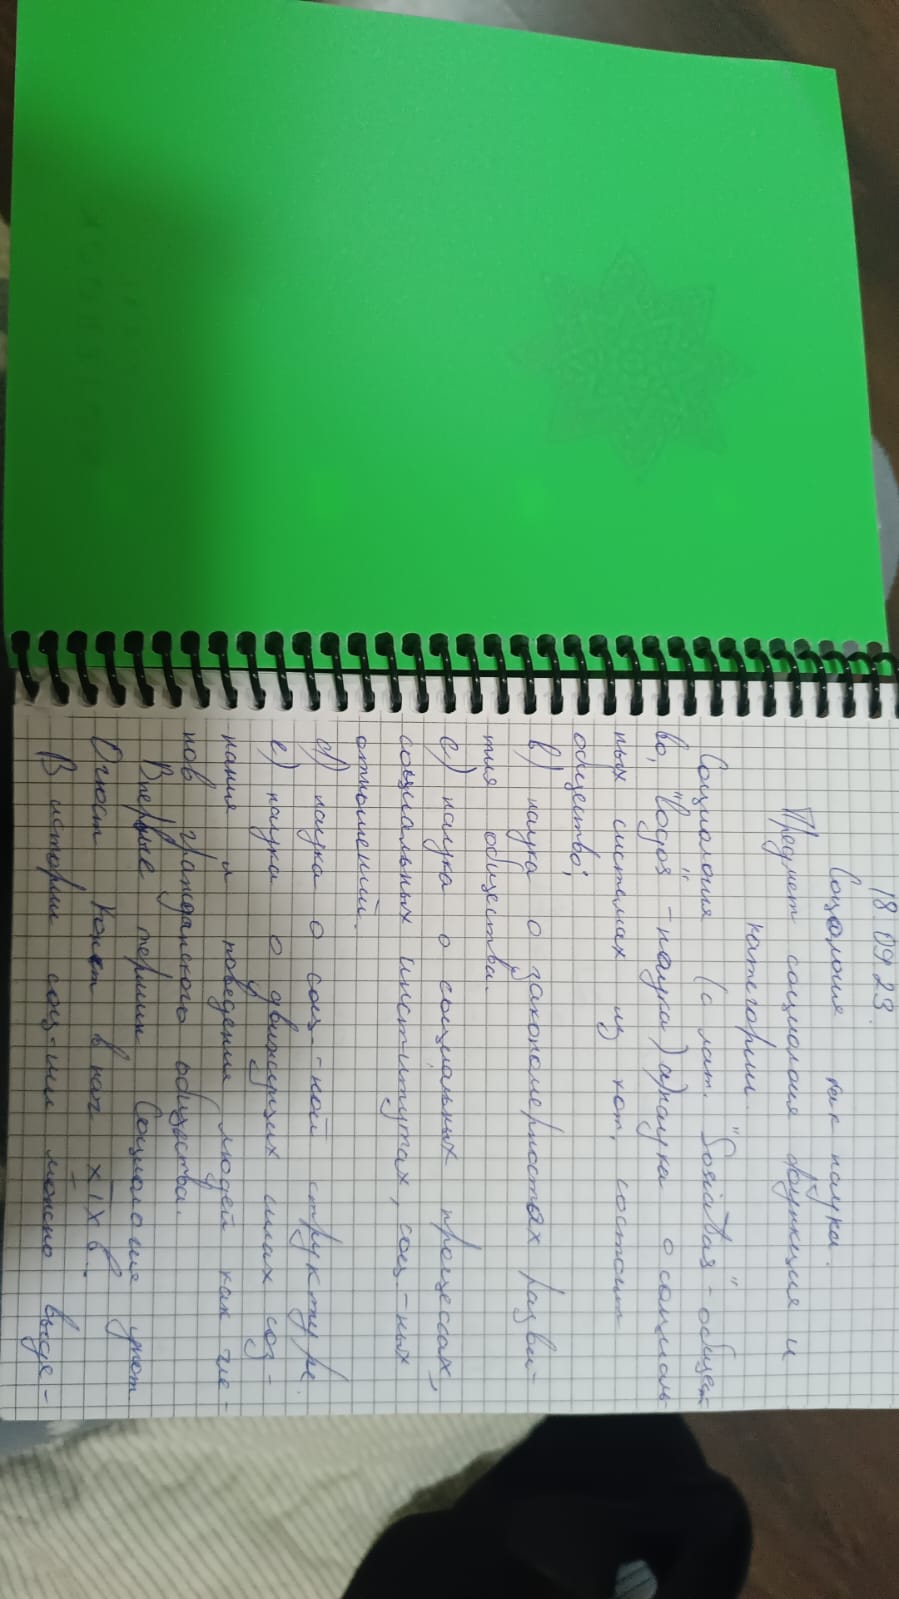 18.09.23.
Социология как наука.
Предмет социология функция и
категории.
Социология (с лат. "Sosiatas" - общест-
во, "logos" - наука) а) наука о социаль-
ных системах из кот. состоит
общество;
в) наука о закономерностях разви-
тия общества.
с) наука о социальных процессах,
социальных институтах, соц-ных
отношений.
d) наука о соц-ной структуре.
е) наука о движущих силах соз-
нания и поведении людей как чле-
нов гражданского общества.
Впервые термин Социология упот.
Огюст Конт в нач XIX в.
В истории соц-ии можно выде-